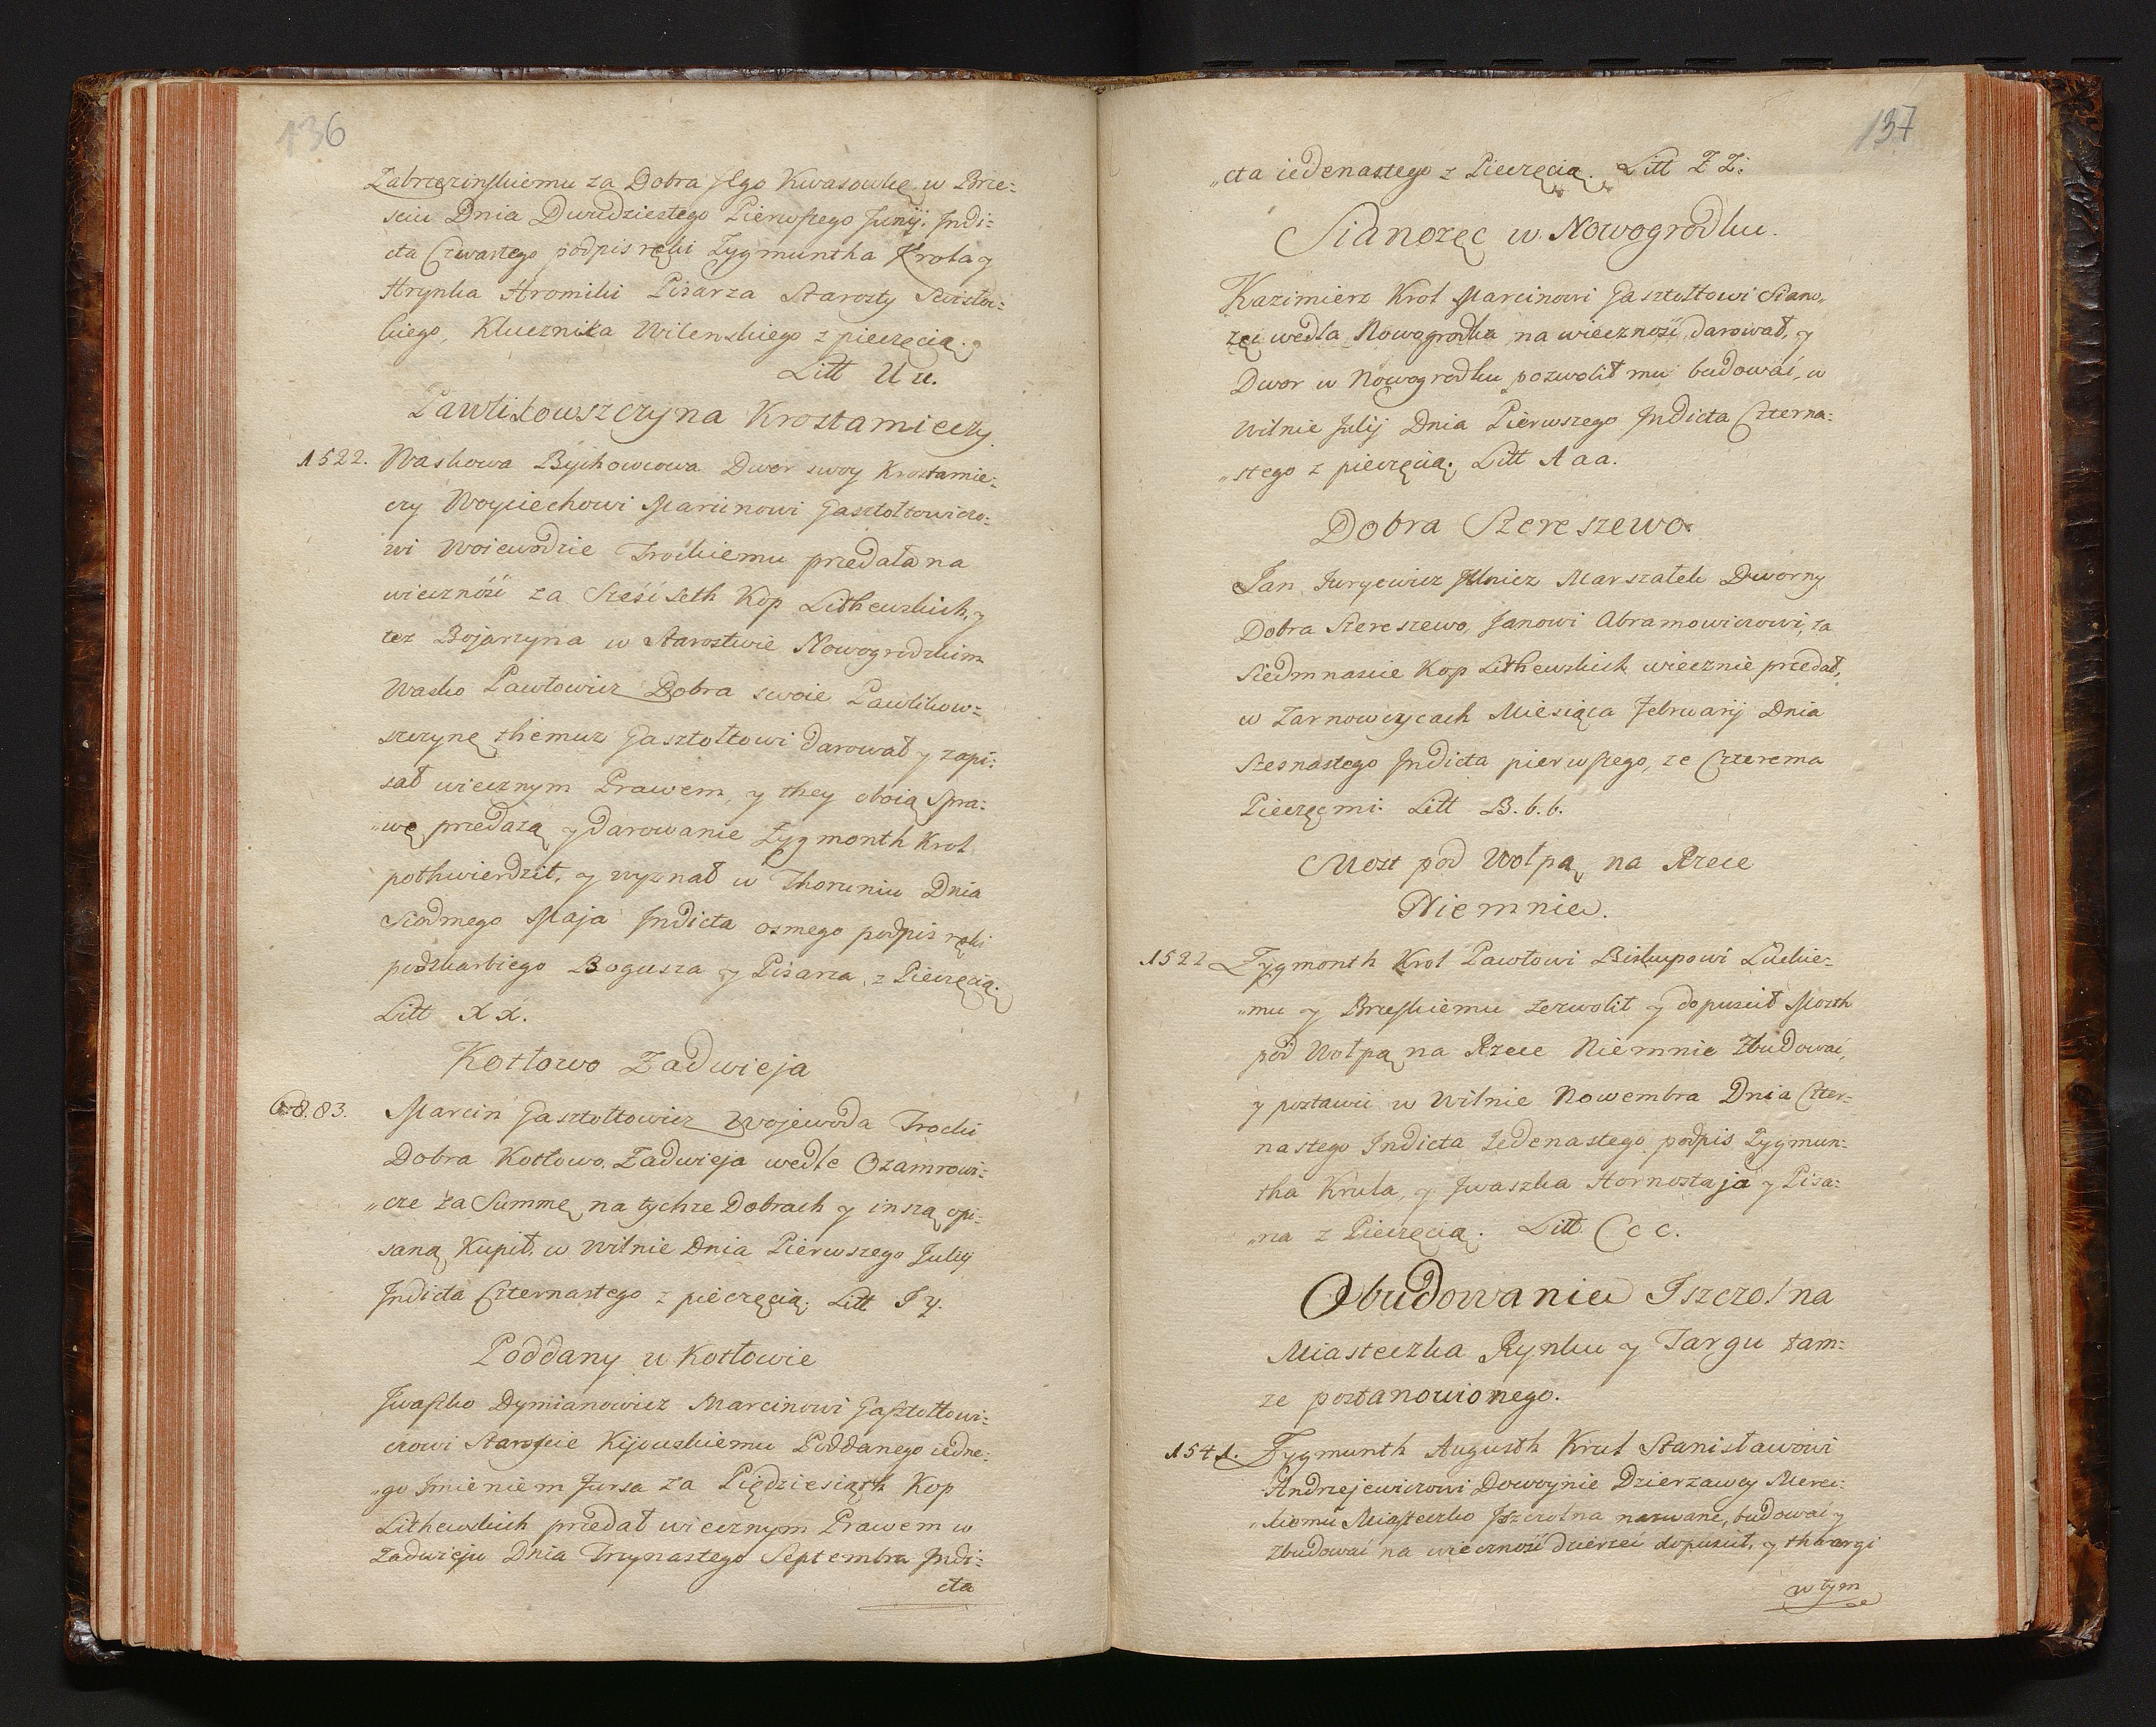 136
Zabrzezinskiemu za Dobra Jego Kwasowkę w Brze=
sciu Dnia Dwudziestego Pierwszego Junij. Jndi=
cta Czwartego podpis ręki Zygmuntha Krola y
Hrynka Hromiki Pisarza Starosty
kiego, Klucznika Wilenskiego z pieczęcią.
Litt U u.
Pawlikowszczyna Krostamieczy.
1522. Waskowa Bychowcowa Dwor swoy Krostamie=
czy Woyciechowi Marcinowi Gasztołtowiczo=
wi Woiewodzie Trockiemu przedała na
wieczność za Sześć seth Kop Lithewskich, y
tez Bojarzyna w Starostwie Nowogrodzkim
Wasko Pawłowicz Dobra swoie Pawlikow=
szczynę themuz Gasztołtowi darował y zapi=
sał wiecznym Prawem, y they oboią spra=
„wę przedazą y darowanie Zygmonth Krol
pothwierdził, y wyznał w Thoruniu Dnia
Siodmego Maja Jndicta osmego podpis ręki
podskarbiego Bogusza y Pisarza, z Pieczęcią.
Litt X x.
Kotłowo Zadwieja
83. Marcin Gasztołtowicz Wojewoda Trocki
Dobra Kotłowo, Zadwieja wedle Ozamrowi=
„cze za Summę na tychze Dobrach y inszą opi=
saną Kupił, w Wilnie Dnia Pierwszego Julij
Jndicta Czternastego z pieczęcią. Litt Y y.
Poddany w Kotłowie
Jwaszko Dymianowicz Marcinowi Gasztołtowi=
czowi Staroscie Kijowskiemu Poddanego iedne=
„go Jmieniem Jursa za Pięcdziesiąth Kop
Lithewskich przedał wiecznym Prawem w
Zadwieju Dnia Trzynastego Septembra Jndi=
cta
137
„cta iedenastego z Pieczęcią. Litt Z Z:
Sianozęc w Nowogrodku.
Kazimierz Krol Marcinowi Gasztołtowi Siano„
zęc wedla Nowogrodka na wieczność darował, y
Dwor w Nowogrodku pozwolił mu budować, w
Wilnie Julij Dnia Pierwszego Jndicta Czterna=
„stego z pieczęcią. Litt A a a.
Dobra Szereszewo.
Jan Juryewicz Marszałek Dworny
Dobra Szereszewo, Janowi Abramowiczowi, za
Siedmnascie Kop Lithewskich wiecznie przedał,
w Zarnowczycach Miesiąca Februarij Dnia
Szesnastego Jndicta pierwszego, ze Czterema
Pieczęcmi. Litt B. b. b.
Most pod Wołpą na Rzece
Niemnie.
1522 Zygmonth Krol Pawłowi Biskupowi Łuckie=
„mu y Brzeskiemu zezwolił y dopuscił Mosth
pod Wołpą na Rzece Niemnie Zbudować,
y postawić w Wilnie Nowembra Dnia Czter=
nastego Jndicta Jedenastego podpis Zygmun=
tha Krula, y Jwaszka Hornostaja y Pisa=
„rza z Pieczęcią. Litt. C c c.
Obudowanie Jszczolna
Miasteczka Rynku y Targu tam=
ze postanowionego.
1541. Zygmunth Augusth Krul Stanisławowi
Andrzejewiczowi Dowoynie Dzierzawcy Merec=
„kiemu Miasteczko Jszczolna nazwane, budować y
Zbudować na wieczność dzierzeć dopuscił, y thargi
w tym